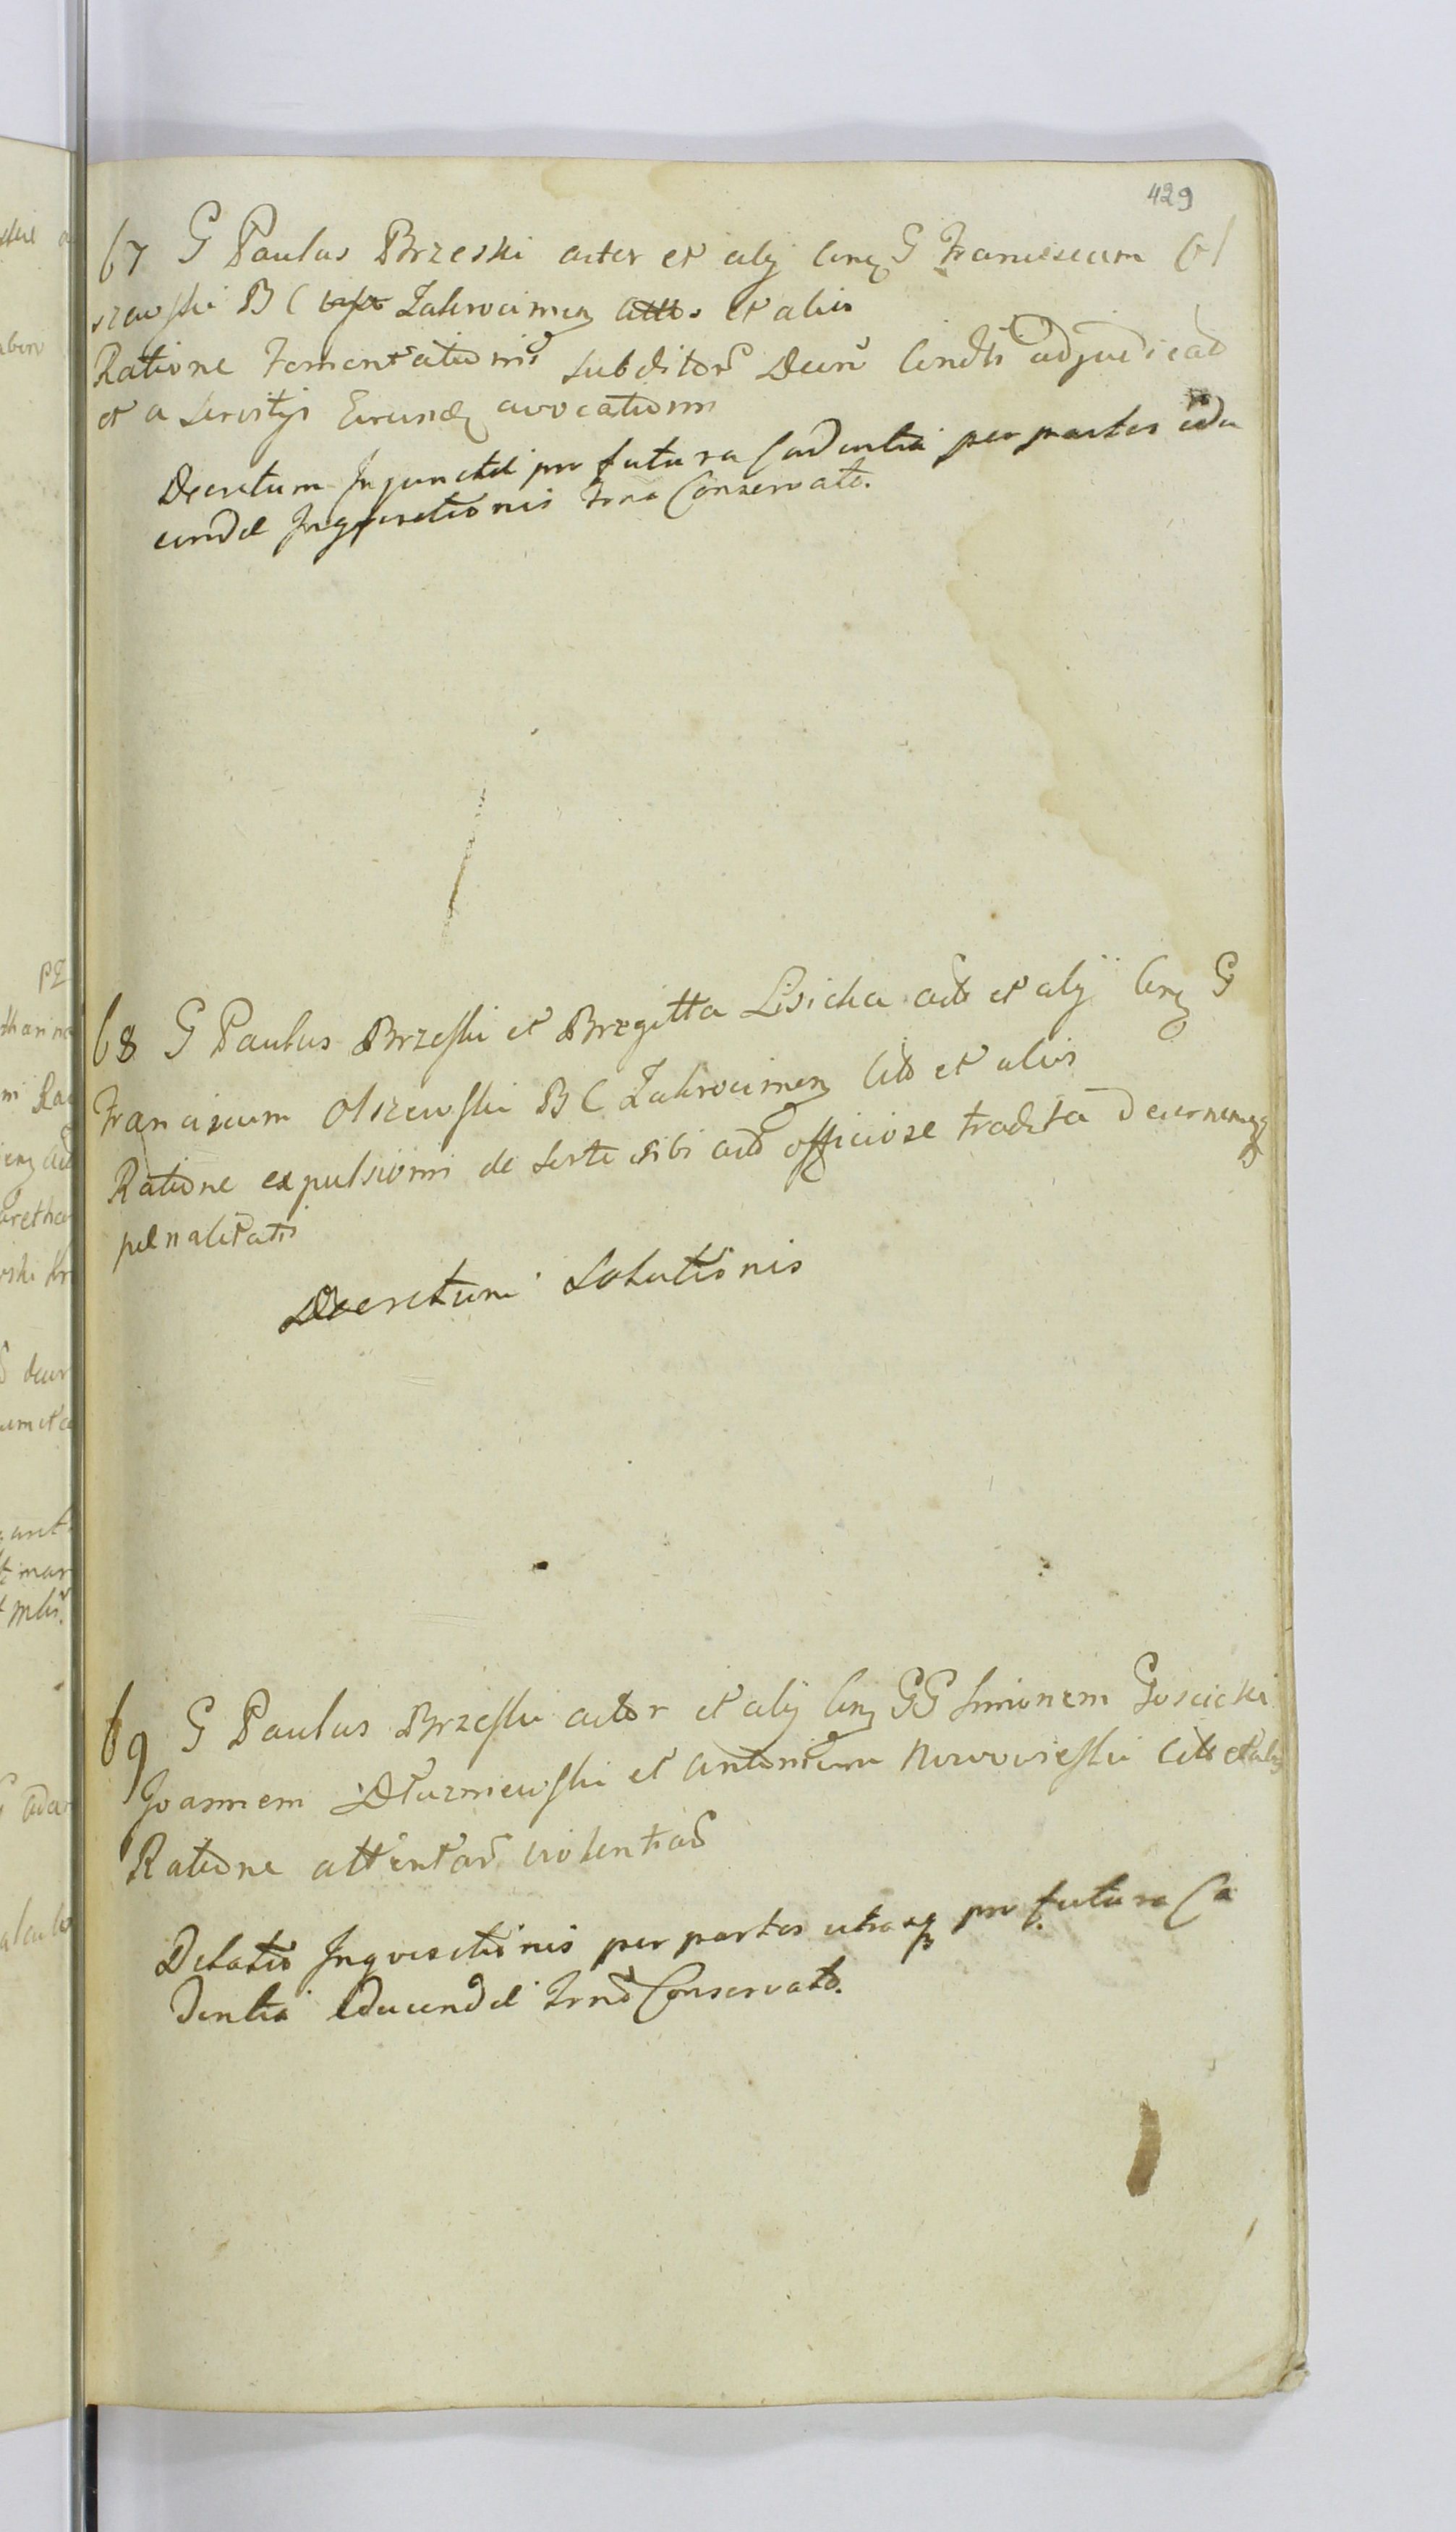 429
67 G Paulus Brzeski actor et alij Cnq G Franciscum Ol
szewski B C Zakrocimen Citt et aliis
Ratione Fomentationis subditor Decr Condti adjudicat
et a servitys Eorund avocationis
Decretum Injunctae pro futura Cadentia per partes edu
cendae Inquisitionis Trno Conservato.
68 G Paulus Brzeski et Brzgitta Lisicka act et alij Cnq G
Franciscum Olszewski B C Zakrocimen Citt et aliis
Ratione expulsionis de sorte sibi act officiose tradita Decernendq
paenalitatis
Decretum Solutionis
69 G Paulus Brzeski actor et alij Cnq GG Simonem Goscicki
Joannem Dłuzniewski et Antonium Nowowieski Citt et aliis
Ratione attentat violentiar
Dilatio Inquisitionis per partes utrasq pro futura Ca
dentia Educendae Trno Conservato.